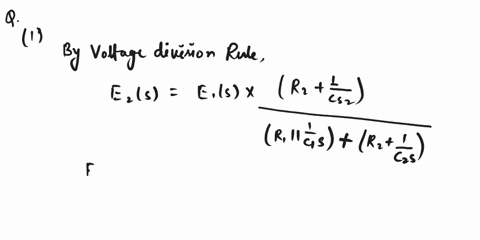 Q.
(1)
By Voltage division Rule,
E₂(s) = E₁(s) × (R₂ + 1/Cs₂) / ((R₁ || 1/C₁s) + (R₂ + 1/C₂s))
F